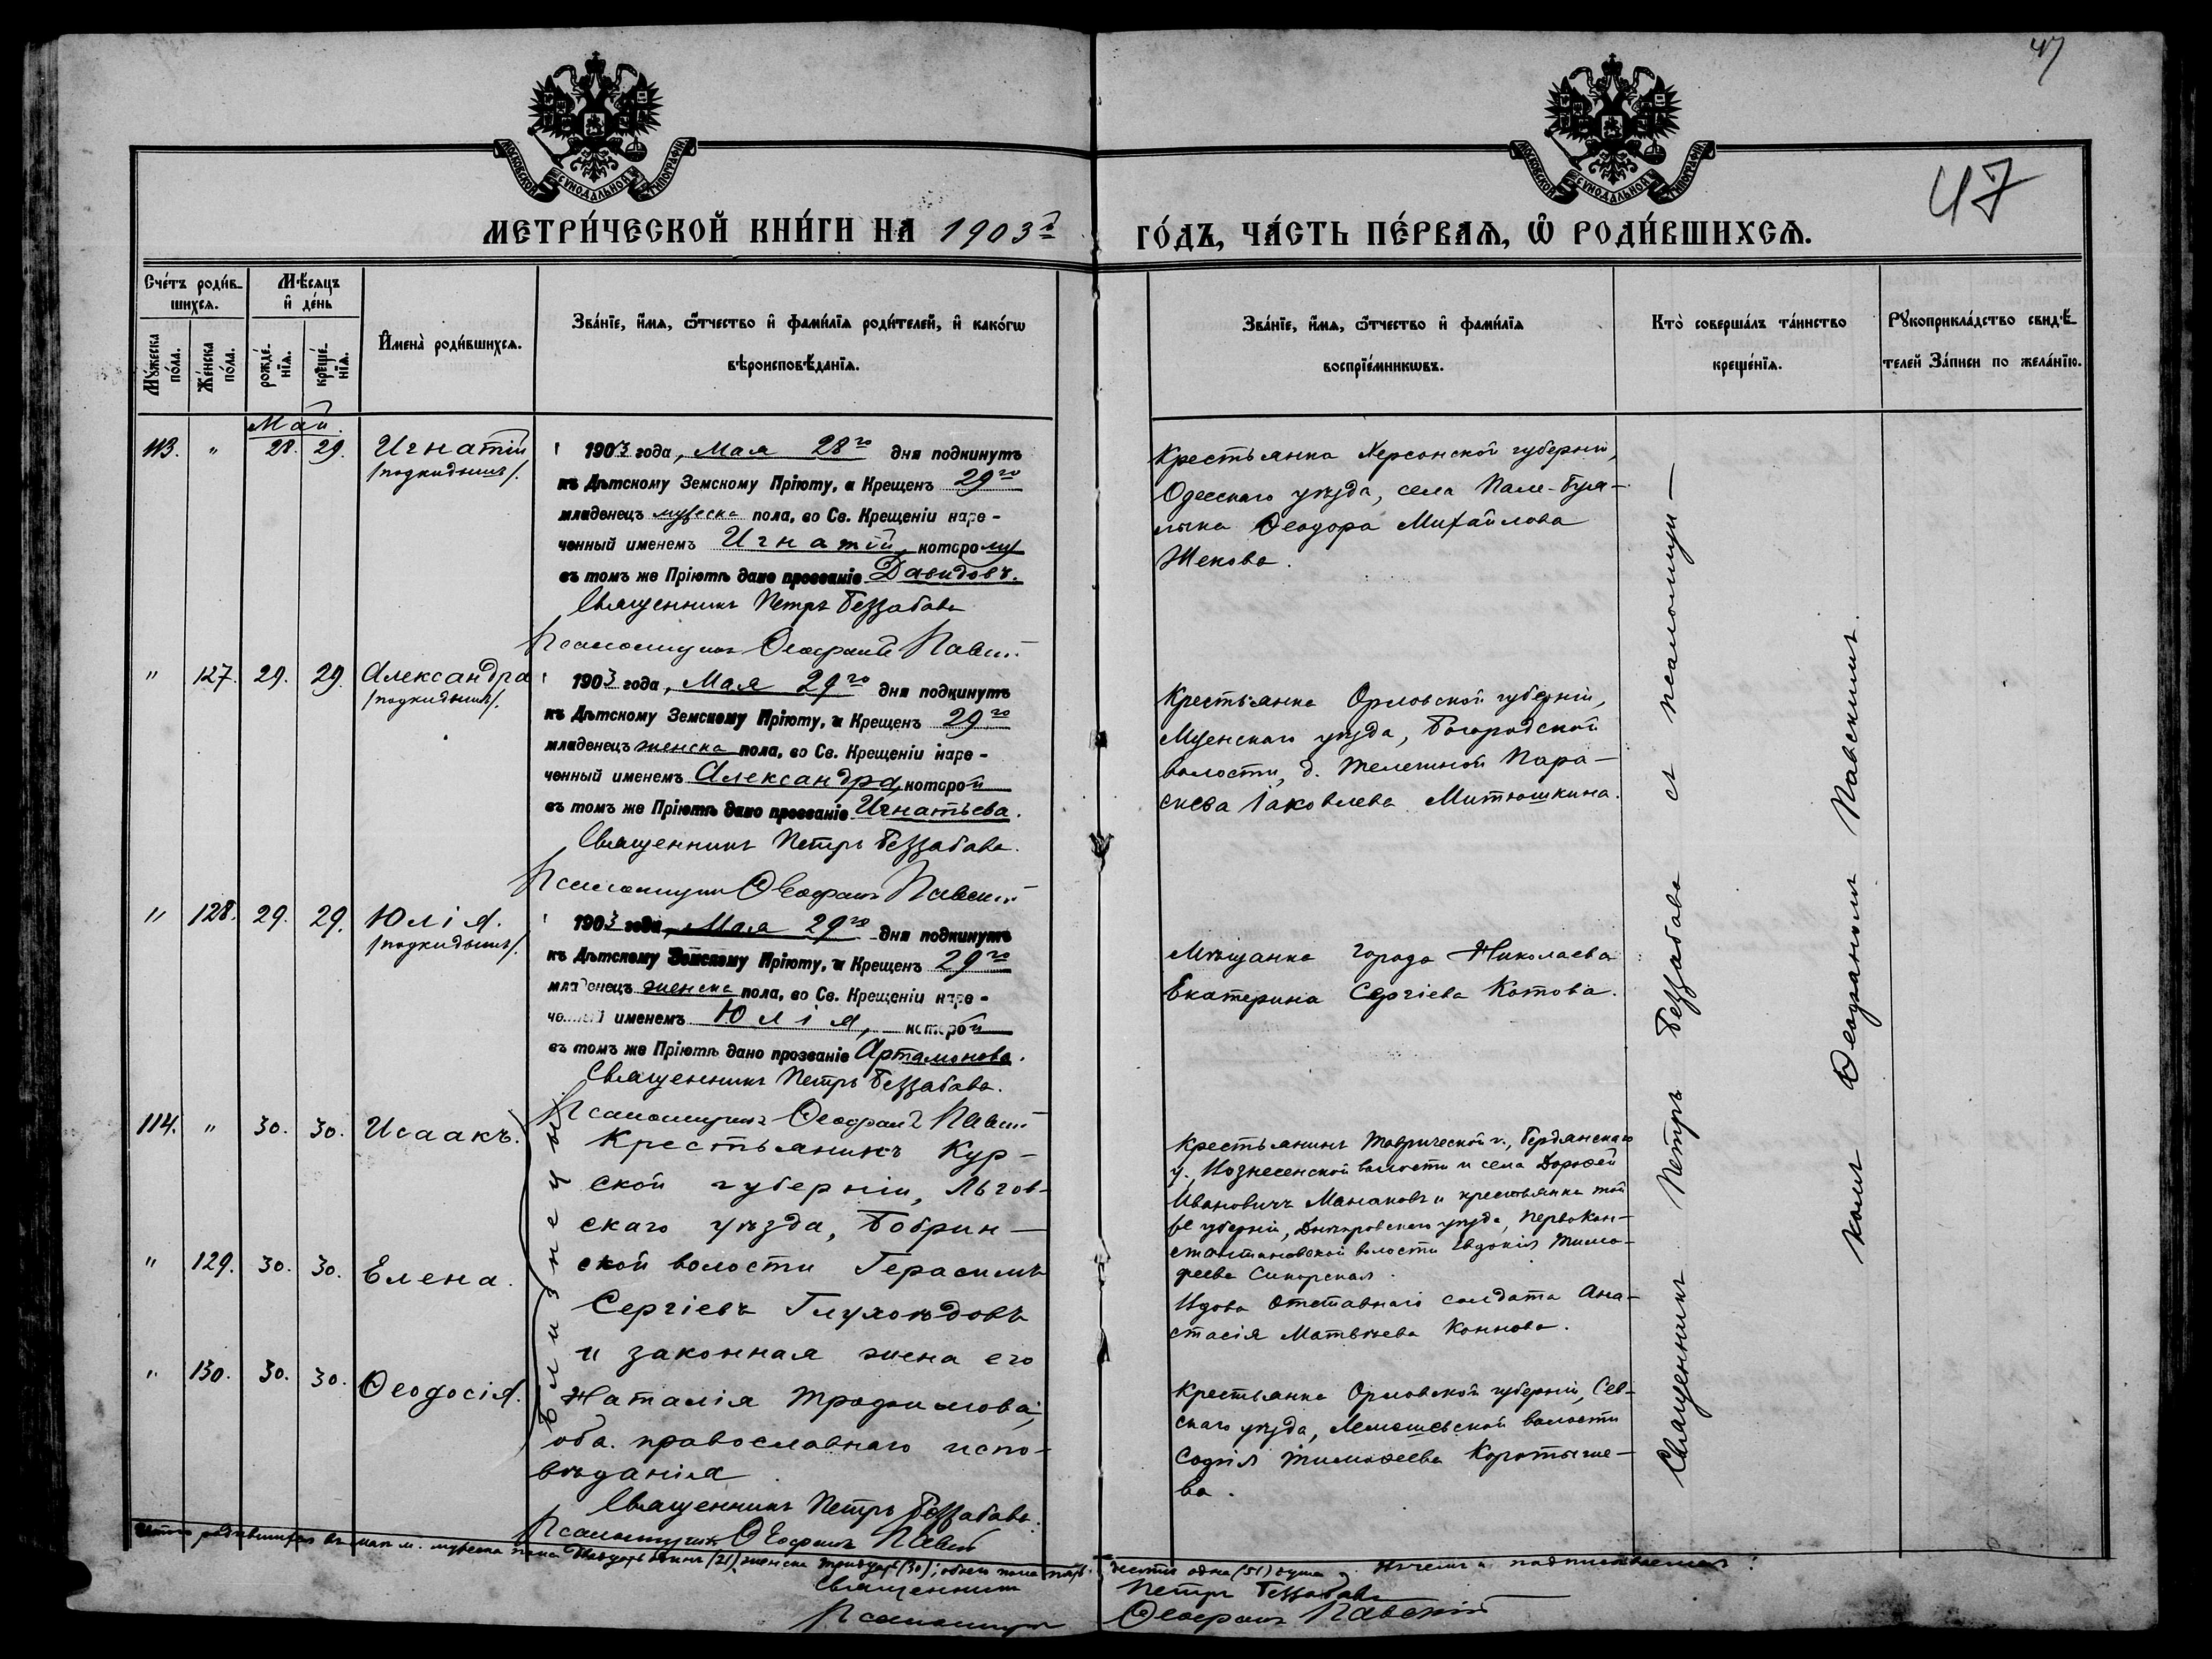 47
МОСКОВСКОЙ СѴНОДАЛЬНОЙ ТИПОГРАФІИ
МОСКОВСКОЙ СѴНОДАЛЬНОЙ ТИПОГРАФІИ
47
МЕТРИ́ЧЕСКОЙ КНИ́ГИ НА 1903й ГО́ДЪ, ЧА́СТЬ ПЕ́РВАѦ, Ѡ҆ РОДИ́ВШИХСѦ.
Сче́тъ роди́в-
шихсѧ.
Мꙋ́жеска по́ла.
Же́нска по́ла.
Мѣ́сѧцъ
и҆ де́нь
рожде́-
нїѧ.
креще́-
нїѧ.
И҆мена̀ роди́вшихсѧ.
Зва́нїе, и҆́мѧ, ѻ҆́тчество и҆ фами́лїѧ роди́телей, и҆ како́гѡ
вѣроисповѣ́данїѧ.
Зва́нїе, и҆́мѧ, ѻ҆́тчество и҆ фами́лїѧ
воспрїе́мникѡвъ.
Кто̀ соверша́лъ та́инство
креще́нїѧ.
Рꙋкоприкла́дство свидѣ́-
телей За́писи по жела́нїю.
Май.
113. " 28. 29. Игнатій
/подкидышъ/.
1903 года, Мая 28го дня подкинутъ
къ Дѣтскому Земскому Пріюту, и Крещенъ 29го
младенецъ мужеска пола, во Св. Крещеніи наре-
ченный именемъ Игнатій, которому
въ томъ же Пріютѣ дано прозваніе Давидовъ.
Священникъ Петръ Беззабава
Псаломщикъ Ѳеофанъ Павскій
Крестьянка Херсонской губерніи,
Одесскаго уѣзда, села
Ѳеодора Михайлова
127. 29. 29. Александра
/подкидышъ/.
1903 года, Мая 29го дня подкинутъ
къ Дѣтскому Земскому Пріюту, и Крещенъ 29го
младенецъ женска пола, во Св. Крещеніи наре-
ченный именемъ Александра, которой
въ томъ же Пріютѣ дано прозваніе Игнатьева.
Священникъ Петръ Беззабава.
Псаломщикъ Ѳеофанъ Павскій
Крестьянка Орловской губерніи,
Мценскаго уѣзда, Богородской
волости, д. Телегиной Пара-
скева Іаковлева Митюшкина.
" 128. 29. 29. Юлія.
/подкидышъ/.
1903 года, Мая 29го дня подкинутъ
къ Дѣтскому Земскому Пріюту, и Крещенъ 29го
младенецъ женска пола, во Св. Крещеніи наре-
ченный именемъ Юлія, которой
въ томъ же Пріютѣ дано прозваніе Артамонова.
Священникъ Петръ Беззабава.
Псаломщикъ Ѳеофанъ Павскій
Мѣщанка города Николаева
Екатерина Сергіева Котова.
114. " 30. 30. Исаакъ.
" 129. 30. 30. Елена.
" 130. 30. 30. Ѳеодосія.
Близнецы
Крестьянинъ Кур-
ской губерніи, Льгов-
скаго уѣзда, Бобрин-
ской волости Герасимъ
Сергіевъ Глухоѣдовъ
и законная жена его
Наталія Трофимова,
оба православнаго испо-
вѣданія
Священникъ Петръ Беззабава.
Псаломщикъ Ѳеофанъ Павскій
Крестьянинъ Таврической г., Бердянскаго
у., Вознесенской волости и села Дороѳей
Ивановичъ Манаковъ и крестьянка той
же губерніи, Днѣпровскаго уѣзда, Первокон-
стантиновской волости Евдокія Тимо-
ѳеева Сикорская.
Вдова отставнаго солдата Ана-
стасія Матвѣева Коннова.
Крестьянка Орловской губерніи, Сев-
скаго уѣзда, волости
Софія Тимоѳеева Коротыче-
ва.
Священникъ Петръ Беззабава съ псаломщи-
комъ Ѳеофаномъ Павскимъ.
Итого родившихся въ маѣ м. мужеска пола двадцать одинъ (21), женска тридцать (30); обоего пола пять-
десятъ одна (51) душа подписываемся:
Священникъ Петръ Беззабава
Псаломщикъ Ѳеофанъ Павскій